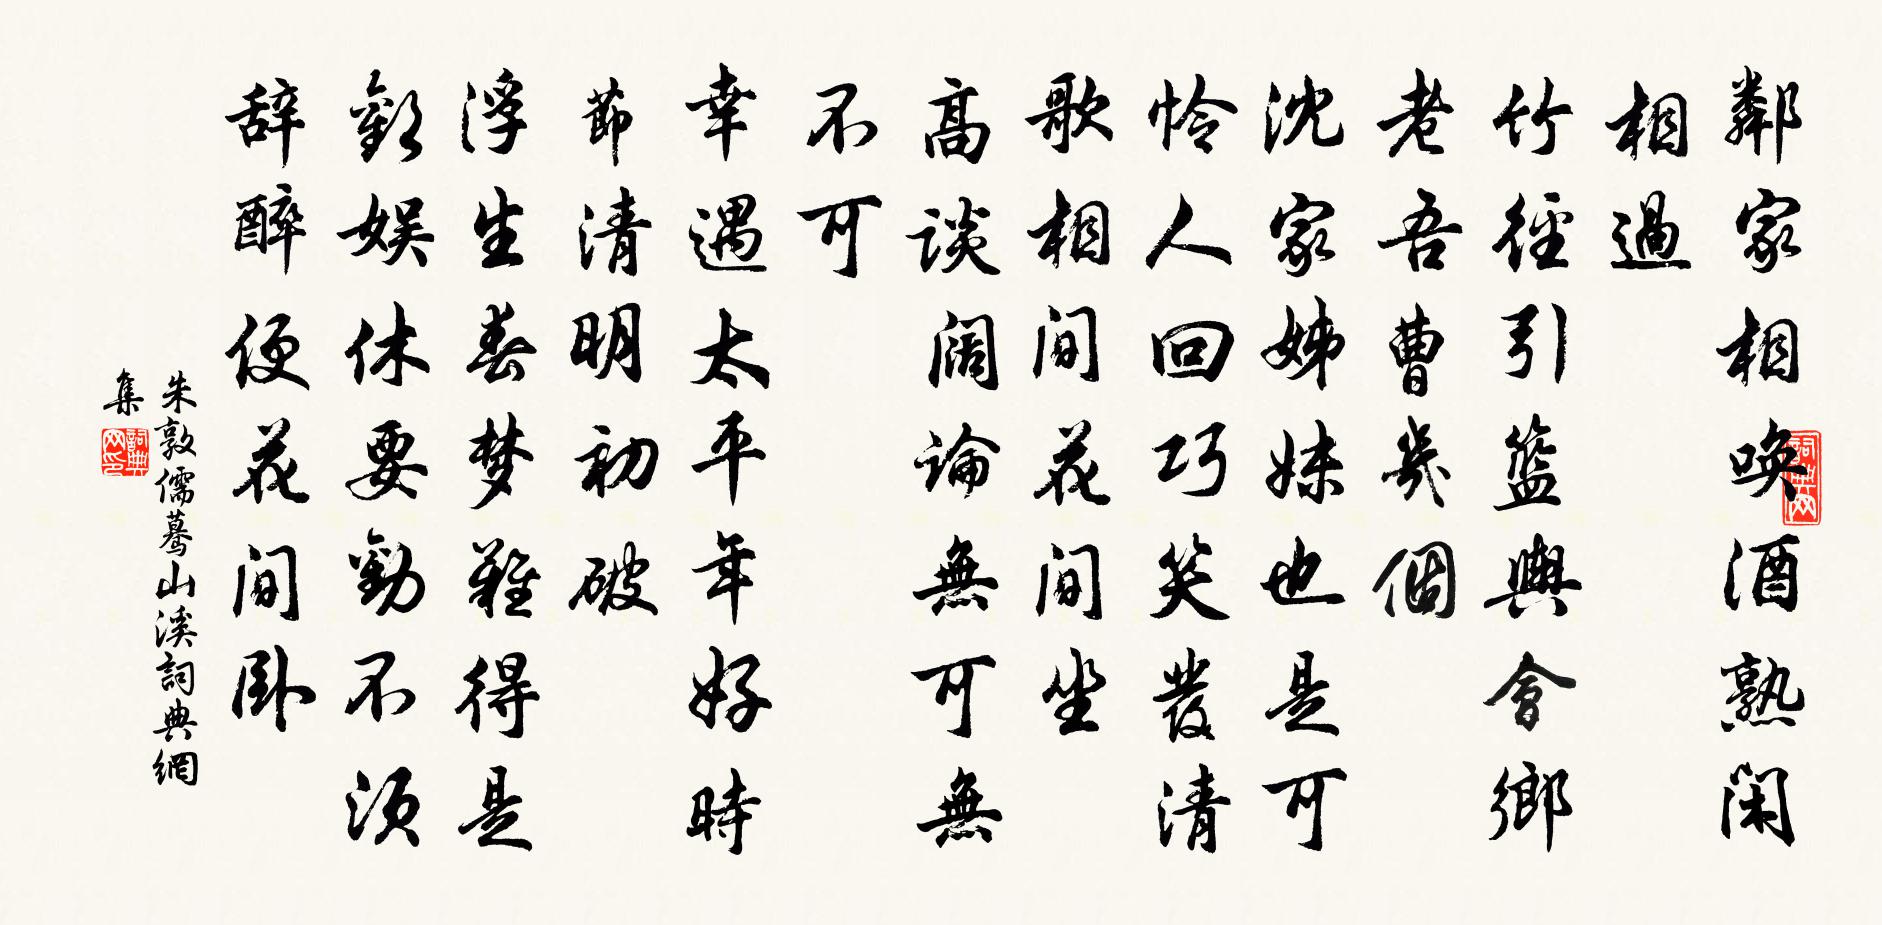 鄰家相喚酒熟閑
相過
竹徑引籃輿會鄉
老吾曹幾個
沈家姊妹也是可
怜人回巧笑發清
歌相間花間坐
高談闊論無可無
不可
幸遇太平年好時
節清明初破
浮生春梦難得是
歡娛休要勸不須
辞醉便花間卧
朱敦儒驀山溪詞典網
集